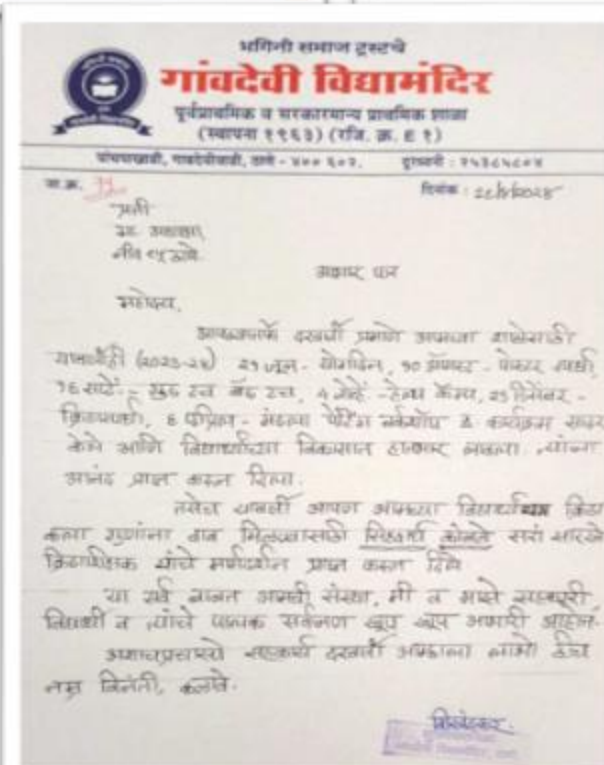 भगिनी समाज ट्रस्टचे
गांवदेवी विद्यामंदिर
पूर्वप्राथमिक व सरकारमान्य प्राथमिक शाळा
(स्थापना १९६३) (रजि. क्र. ई १)
पांचपाखाडी, गावदेवीवाडी, ठाणे - ४०० ६०२. दूरध्वनी : २५३८५८०४
जा.क्र. दिनांक :
प्रती
मा. अध्यक्ष,
आभार पत्र
महोदय,
आपल्यातर्फे दरवर्षी प्रमाणे आमच्या शाळेसाठी
यावर्षीही (2023-24) 21 जून - योगदिन, 10 ऑगस्ट - पोस्टर स्पर्धा,
16 सप्टें - गुड टच बॅड टच, 4 नोव्हें - हेल्थ कॅम्प, 25 डिसेंबर -
क्रिडास्पर्धा, 6 एप्रिल - मंडला पेंटिंग वर्कशॉप हे कार्यक्रम सादर
केले आणि विद्यार्थ्यांच्या विकासात हातभार लावला. त्यांना
आनंद प्राप्त करून दिला.
तसेच यावर्षी आपण आमच्या क्रिडा
कला गुणांना वाव मिळण्यासाठी सिद्धार्थ सरां सारखे
यांचे मार्गदर्शन प्राप्त करून दिले
या सर्व बाबत आमची संस्था, मी व माझे सहकारी,
विद्यार्थी व त्यांचे पालक सर्वजण खूप खूप आभारी आहोत.
अशाचप्रकारचे सहकार्य दरवर्षी आम्हाला लाभो हीच
नम्र विनंती, कळावे.